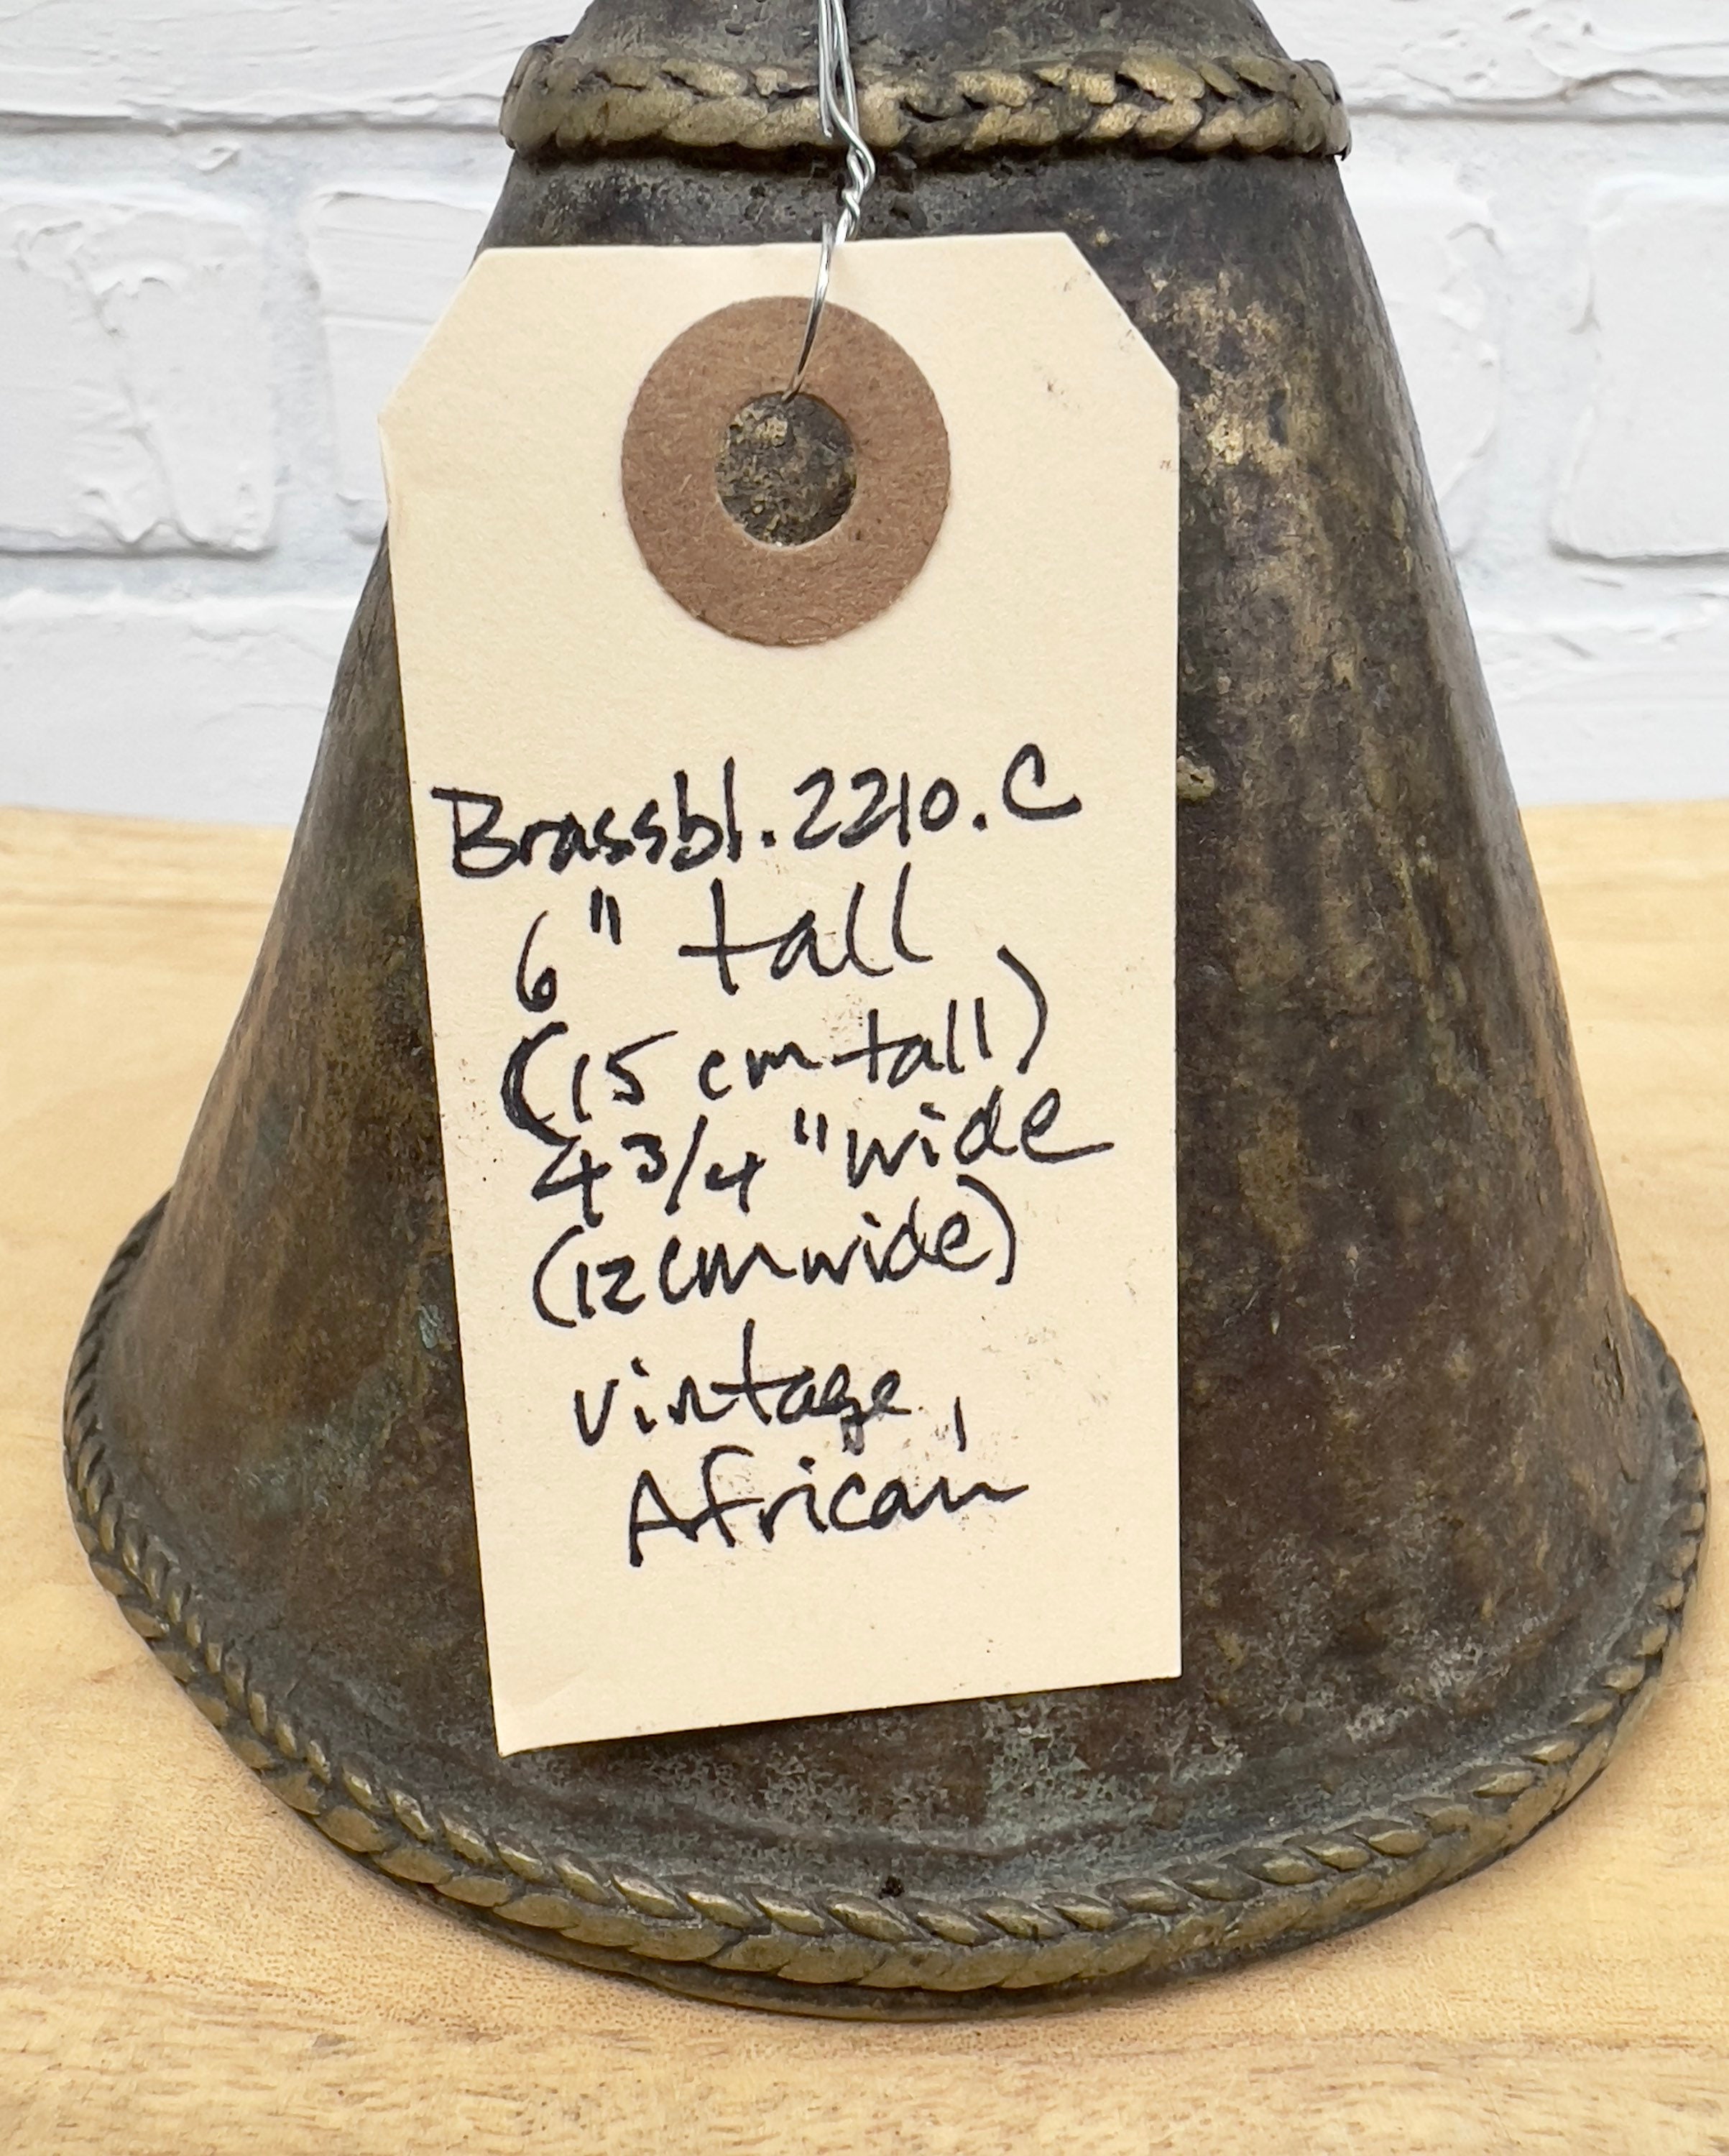 Brassbl.2210.C
6" tall
(15 cm tall)
4 3/4 "wide
(12cm wide)
vintage,
African